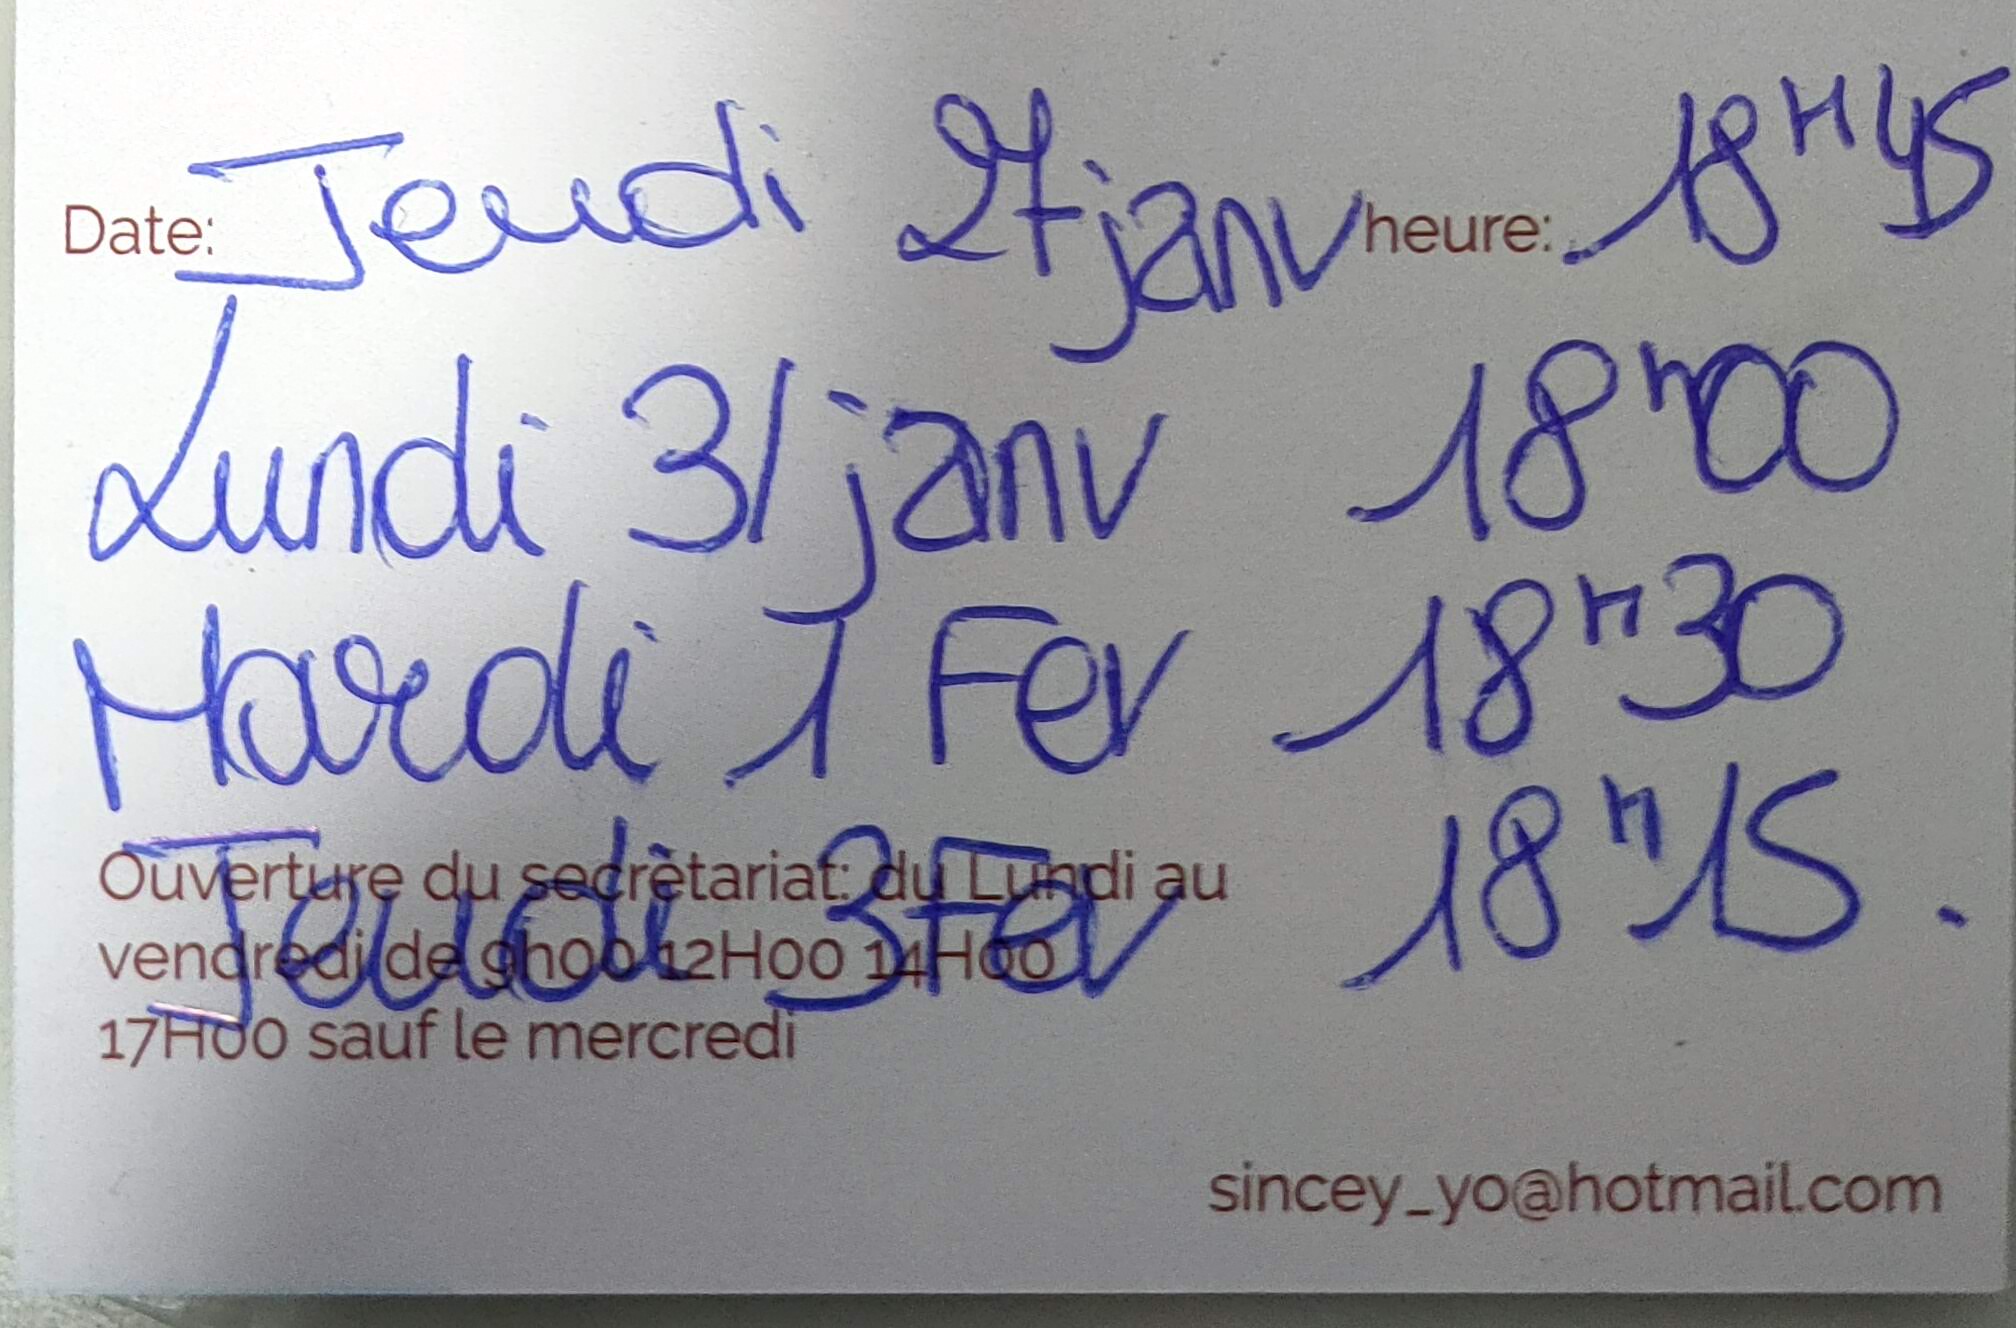 Date: Jeudi 27 janv heure: 18H45
Lundi 31 janv 18H00
Mardi 1 Fev 18H30
Jeudi 3 Fev 18H15.
Ouverture du secrètariat: du Lundi au
vendredi de 9h00 12H00 14H00
17H00 sauf le mercredi
sincey_yo@hotmail.com